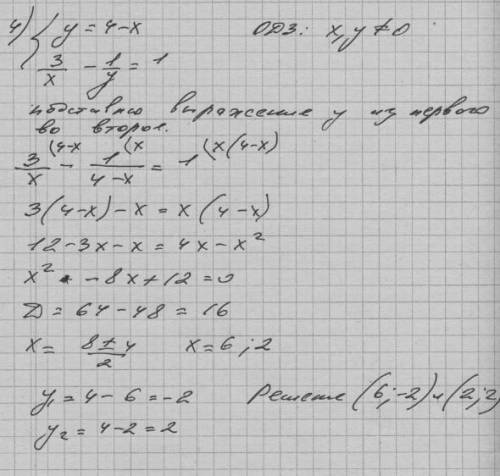 4) { y = 4-x        ОДЗ: x, y ≠ 0
3/x - 1/y = 1
подставлю выражение y из первого
во второе.
3/x (4-x - 1/(4-x) (x = 1 (x(4-x)
3(4-x) - x = x(4-x)
12-3x-x = 4x-x²
x² - 8x+12 = 0
D = 64-48 = 16
x = (8±4)/2    x = 6; 2
y₁ = 4-6 = -2    Решение (6; -2) и (2; 2)
y₂ = 4-2 = 2